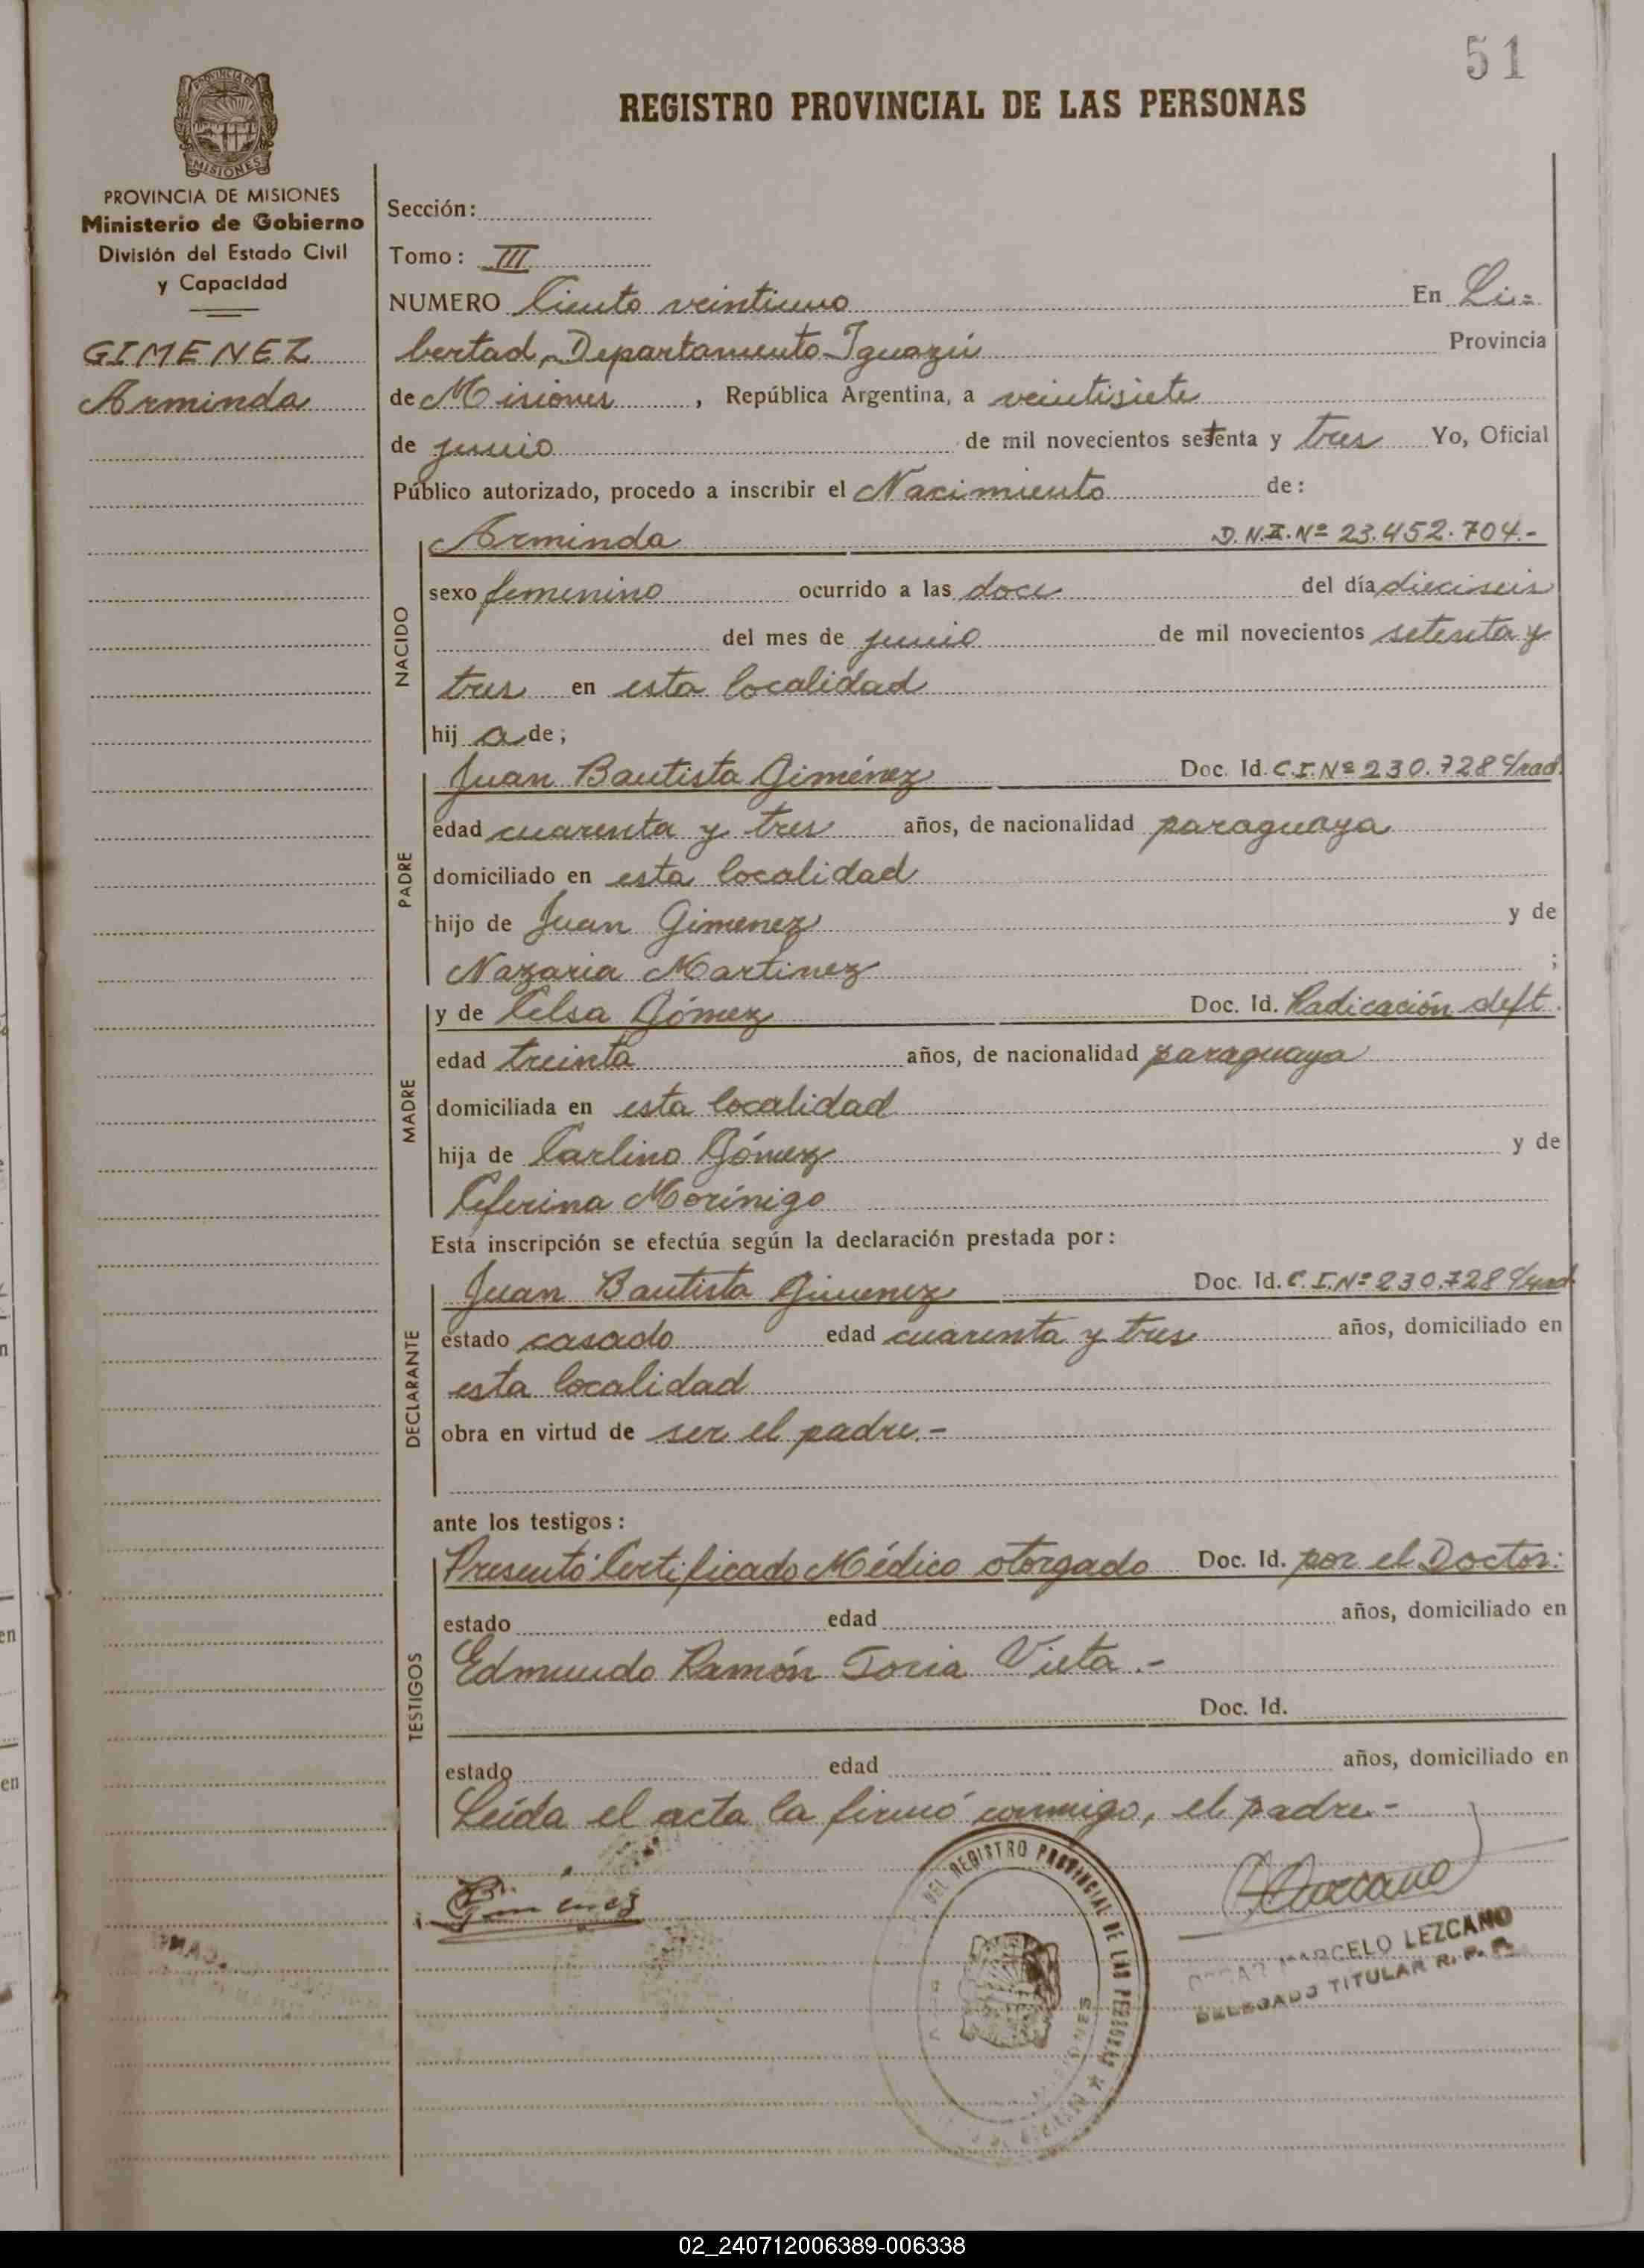 51
REGISTRO PROVINCIAL DE LAS PERSONAS
PROVINCIA DE MISIONES
MISIONES
PROVINCIA DE MISIONES
Ministerio de Gobierno
División del Estado Civil
y Capacidad
GIMENEZ
Arminda
Sección:
Tomo: III
NUMERO Ciento veintiuno En Li=
bertad, Departamento Iguazú Provincia
de Misiones, República Argentina, a veintisiete
de junio de mil novecientos setenta y tres Yo, Oficial
Público autorizado, procedo a inscribir el Nacimiento de:
NACIDO
Arminda D.N.I. Nº 23.452.704.-
sexo femenino ocurrido a las doce del día dieciseis
del mes de junio de mil novecientos setenta y
tres en esta localidad
hij a de;
PADRE
Juan Bautista Giménez Doc. Id. C.I. Nº 230.728 C/rad.
edad cuarenta y tres años, de nacionalidad paraguaya
domiciliado en esta localidad
hijo de Juan Gimenez y de
Nazaria Martinez ;
MADRE
y de Celsa Gómez Doc. Id. Radicación deft.
edad treinta años, de nacionalidad paraguaya
domiciliada en esta localidad
hija de Carlino Gómez y de
Ceferina Morínigo
Esta inscripción se efectúa según la declaración prestada por:
DECLARANTE
Juan Bautista Gimenez Doc. Id. C.I. Nº 230.728 C/rad.
estado casado edad cuarenta y tres años, domiciliado en
esta localidad
obra en virtud de ser el padre.-
ante los testigos:
TESTIGOS
Presentó Certificado Médico otorgado Doc. Id. por el Doctor:
estado edad años, domiciliado en
Edmundo Ramón Soria Vieta.-
Doc. Id.
estado edad años, domiciliado en
Leída el acta la firmó conmigo, el padre.-
Gimenez
DEL REGISTRO PROVINCIAL DE LAS PERSONAS
MARCELO LEZCANO
DELEGADO TITULAR R. P. P.
02_240712006389-006338